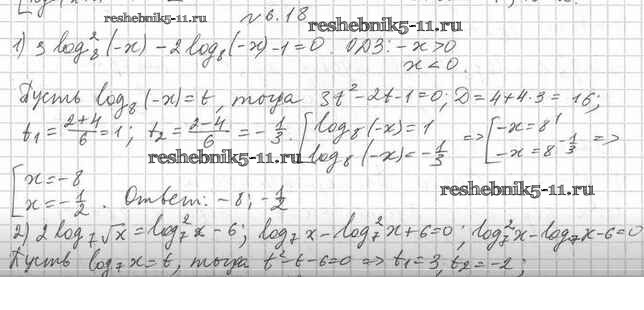 № 6.18
reshebnik5-11.ru
reshebnik5-11.ru
1) 3 log₈²(-x) - 2 log₈(-x) - 1 = 0. ОДЗ: -x > 0
x < 0.
Пусть log₈(-x) = t, тогда 3t² - 2t - 1 = 0; D = 4 + 4·3 = 16;
t₁ = (2+4)/6 = 1; t₂ = (2-4)/6 = -1/3. [log₈(-x) = 1 => [-x = 8¹
log₈(-x) = -1/3 -x = 8^(-1/3) =>
reshebnik5-11.ru
reshebnik5-11.ru
[x = -8
x = -1/2. Ответ: -8; -1/2
2) 2 log₇√x = log₇²x - 6; log₇x - log₇²x + 6 = 0; log₇²x - log₇x - 6 = 0
Пусть log₇x = t, тогда t² - t - 6 = 0 => t₁ = 3, t₂ = -2;